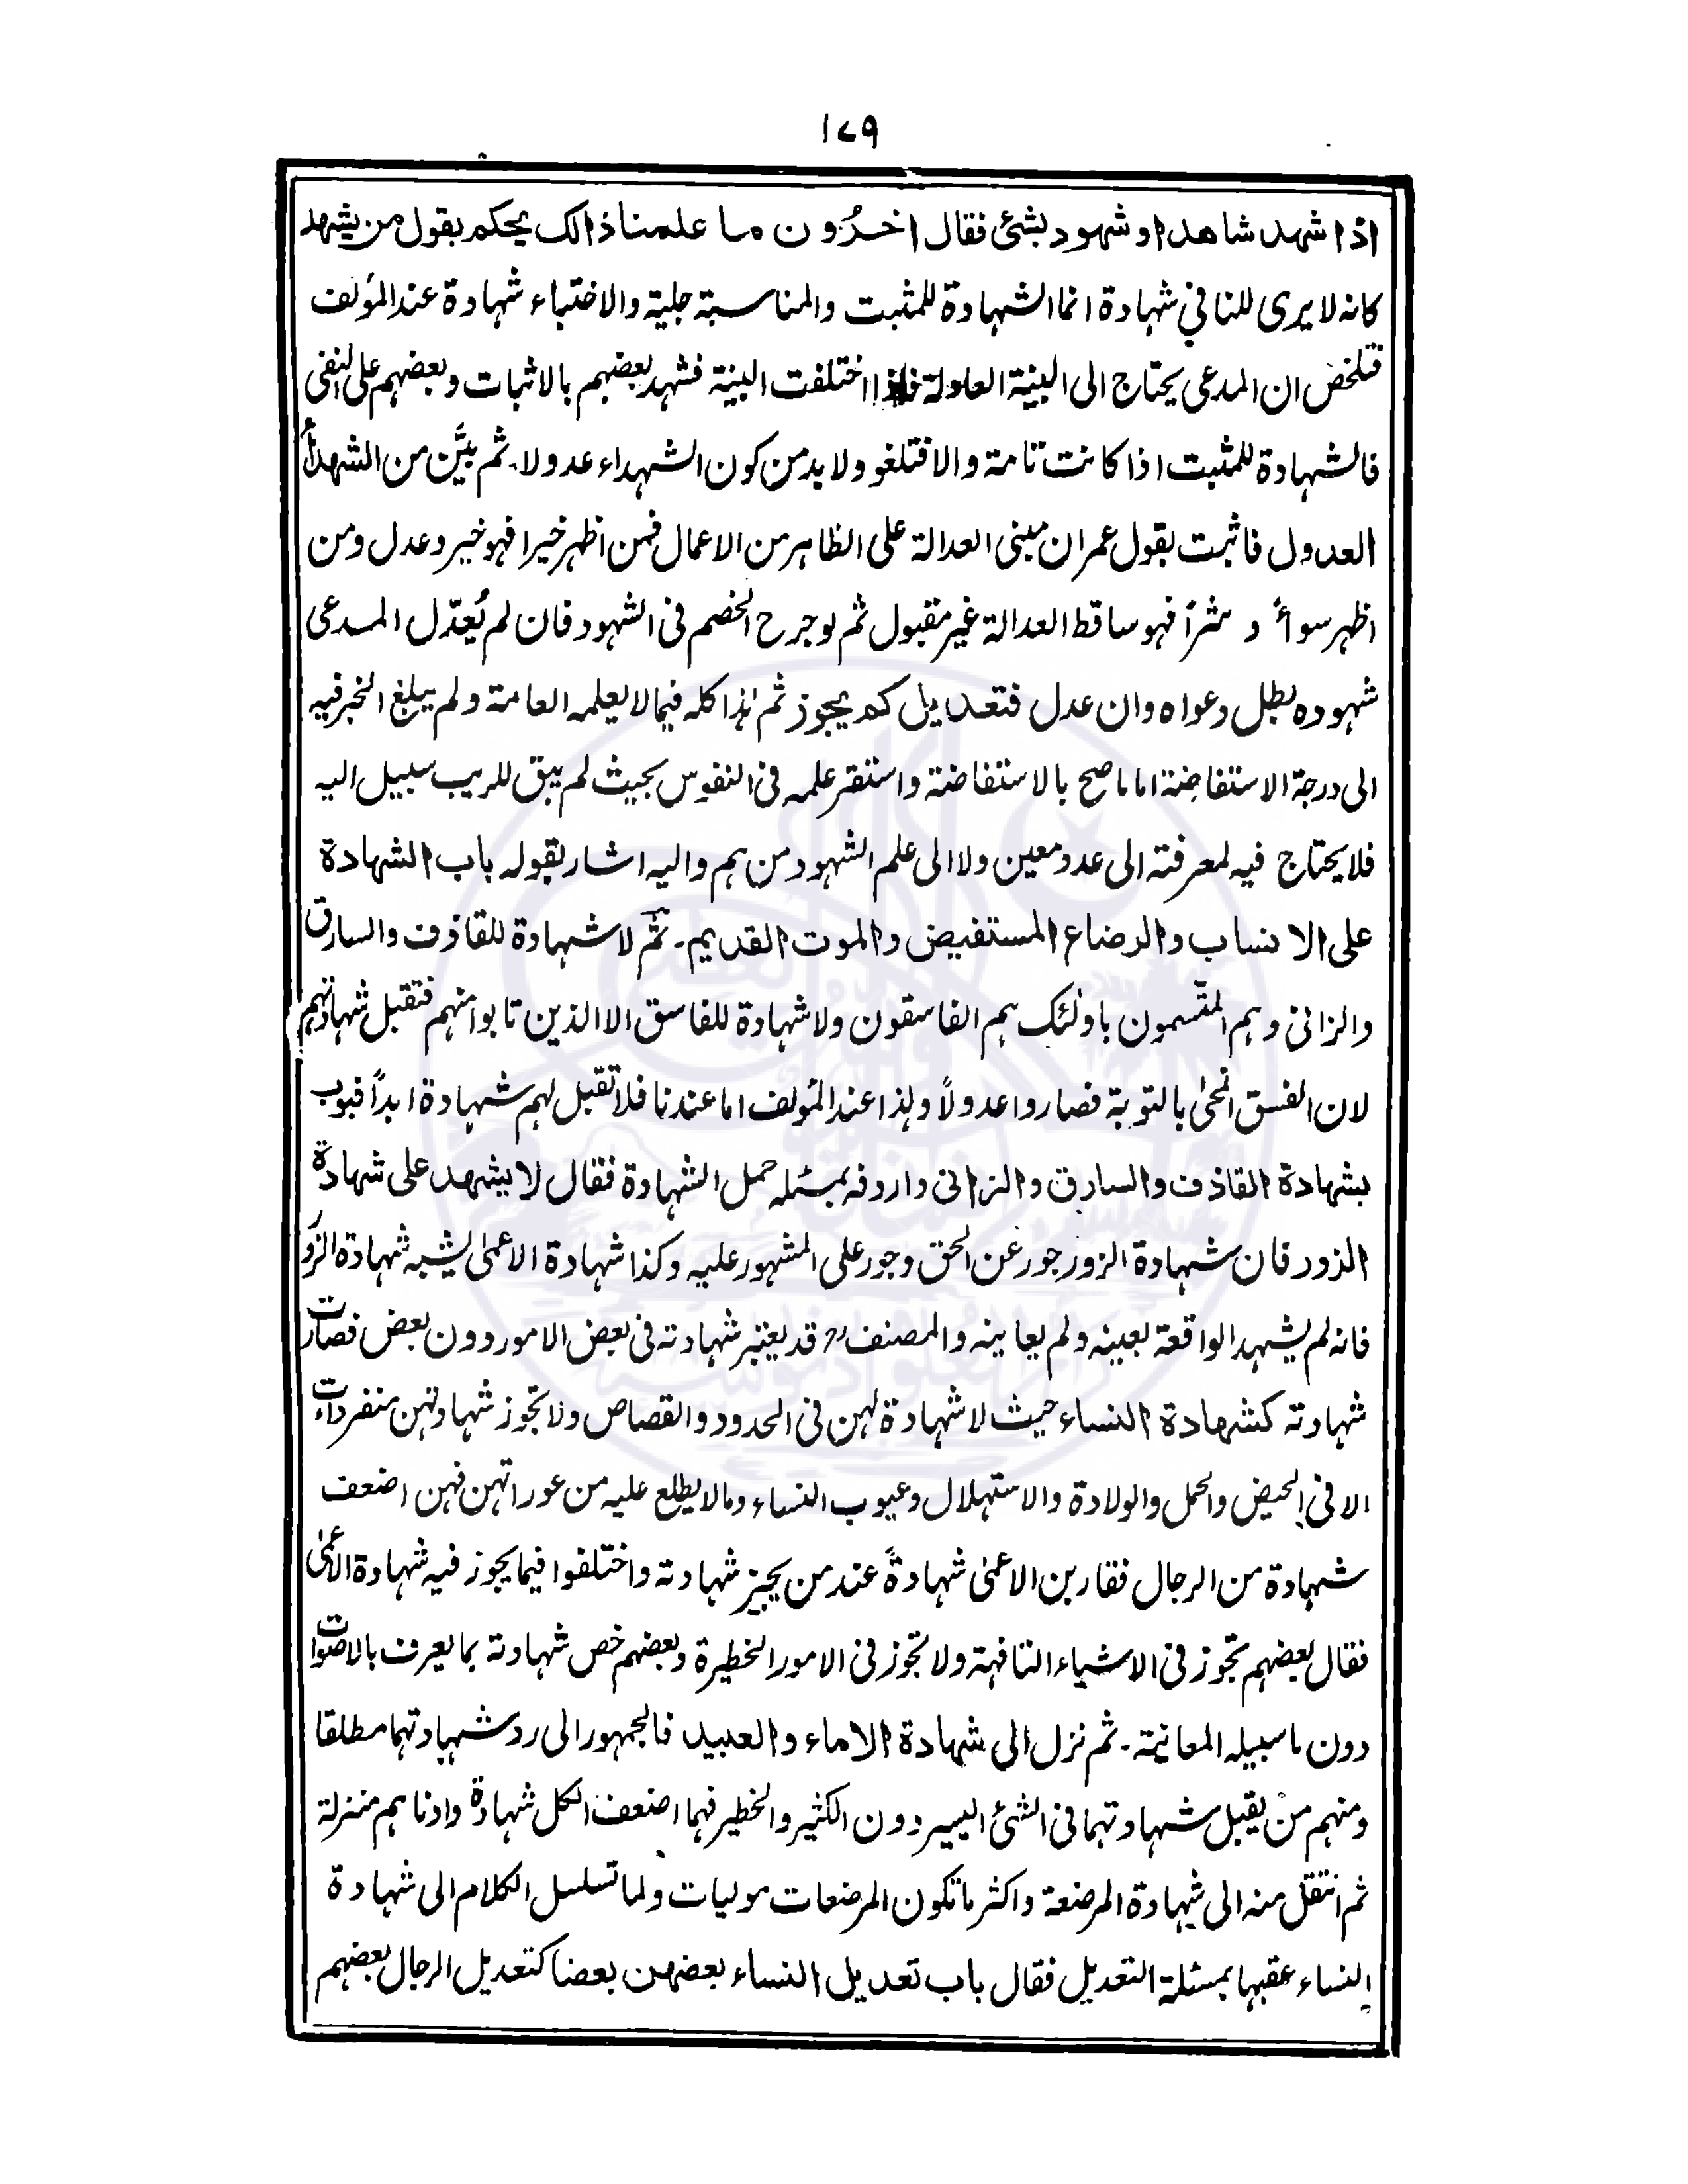 ۱۷۹
اذا شهد شاهد او شهود بشئ فقال اخرون ما علمنا ذالك يحكم بقول من يشهد
كانه لا يرى للنافي شهادة انما الشهادة للمثبت والمناسبة جلية والاختباء شهادة عند المؤلف
فتلخص ان المدعى يحتاج الى البينة العادلة فاذا اختلفت البينة فشهد بعضهم بالاثبات وبعضهم على النفى
فالشهادة للمثبت اذا كانت تامة والا فتلغو ولا بد من كون الشهداء عدولا۔ ثم بيَّن من الشهداء
العدول فاثبت بقول عمر ان مبنى العدالة على الظاهر من الاعمال فمن اظهر خيرا فهو خير وعدل ومن
اظهر سوأً و شراً فهو ساقط العدالة غير مقبول ثم لو جرح الخصم فى الشهود فان لم يُعدّل المدعى
شهوده بطل دعواه وان عدل فتعديل كم يجوز ثم هٰذا كله فيما لا يعلمه العامة ولم يبلغ الخبر فيه
الى درجة الاستفاضة اما ما صح بالاستفاضة واستقر علمه فى النفوس بحيث لم يبق للريب سبيل اليه
فلا يحتاج فيه لمعرفته الى عدد معين ولا الى علم الشهود من هم واليه اشار بقوله باب الشهادة
على الانساب والرضاع المستفيض والموت القديم۔ ثم لا شهادة للقاذف والسارق
والزانى وهم المقسمون باولٰئك هم الفاسقون ولا شهادة للفاسق الا الذين تابوا منهم فتقبل شهادتهم
لان الفسق انمحىٰ بالتوبة فصاروا عدولاً وهذا عند المؤلف اما عندنا فلا تقبل لهم شهادة ابداً فبوب
بشهادة القاذف والسارق والزانى واردفه بمسئلة حمل الشهادة فقال لا يشهد على شهادة
الزور فان شهادة الزور جور عن الحق وجور على المشهور عليه وكذا شهادة الاعمىٰ يشبه شهادة الزور
فانه لم يشهد الواقعة بعينه ولم يعاينه والمصنف رح قد يعتبر شهادته فى بعض الامور دون بعض فصارت
شهادته كشهادة النساء حيث لا شهادة لهن فى الحدود والقصاص ولا تجوز شهادتهن منفردات
الا فى الحيض والحمل والولادة والاستهلال وعيوب النساء ومالا يطلع عليه من عوراتهن فهن اضعف
شهادة من الرجال فقاربن الاعمىٰ شهادةً عند من يجيز شهادته واختلفوا فيما يجوز فيه شهادة الاعمىٰ
فقال بعضهم تجوز فى الاشياء التافهة ولا تجوز فى الامور الخطيرة وبعضهم خص شهادته بما يعرف بالاصوات
دون ما سبيله المعاينة۔ ثم نزل الى شهادة الاماء والعبيد فالجمهور الى رد شهادتهما مطلقا
ومنهم من يقبل شهادتهما فى الشئ اليسير دون الكثير والخطير فهما اضعف الكل شهادة وادناهم منزلة
ثم انتقل منه الى شهادة المرضعة واكثر ما تكون المرضعات موليات ولما تسلسل الكلام الى شهادة
النساء عقبها بمسئلة التعديل فقال باب تعديل النساء بعضهن بعضا كتعديل الرجال بعضهم